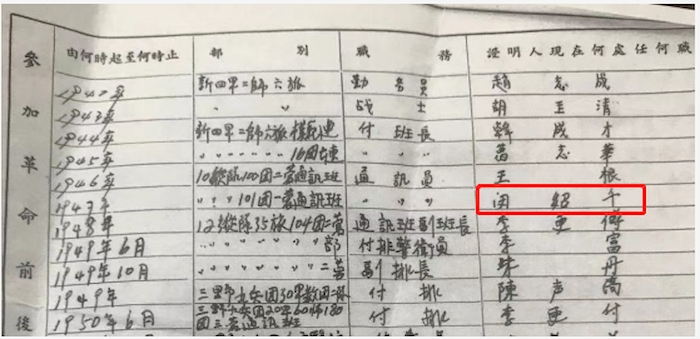 參加革命前後
由何時起至何時止 部別 職務 證明人現在何處任何職
1942年 新四軍二師六旅 勤务員 趙志成
1943年 〃 〃 战士 胡玉清
1944年 新四軍二師六旅模範連 付班長 韓成才
1945年 〃 〃 〃 〃 16团 〃 〃 葛志華
1946年 10縱隊100团一营通訊班 通訊員 王根
1947年 〃 〃 101团一营通訊班 〃 〃 闵紹千
1948年 12縱隊35旅104团二营 通訊班副班長 李更付
1949年6月 〃 〃 〃 〃 部 付排警衛員 李富
1949年10月 〃 〃 〃 〃 二营 副排長 朱丹
1949年 三野 兵团30军 付排 陳声高
1950年6月 三野 兵团20军60师180 付排 李更付
团三营通訊班